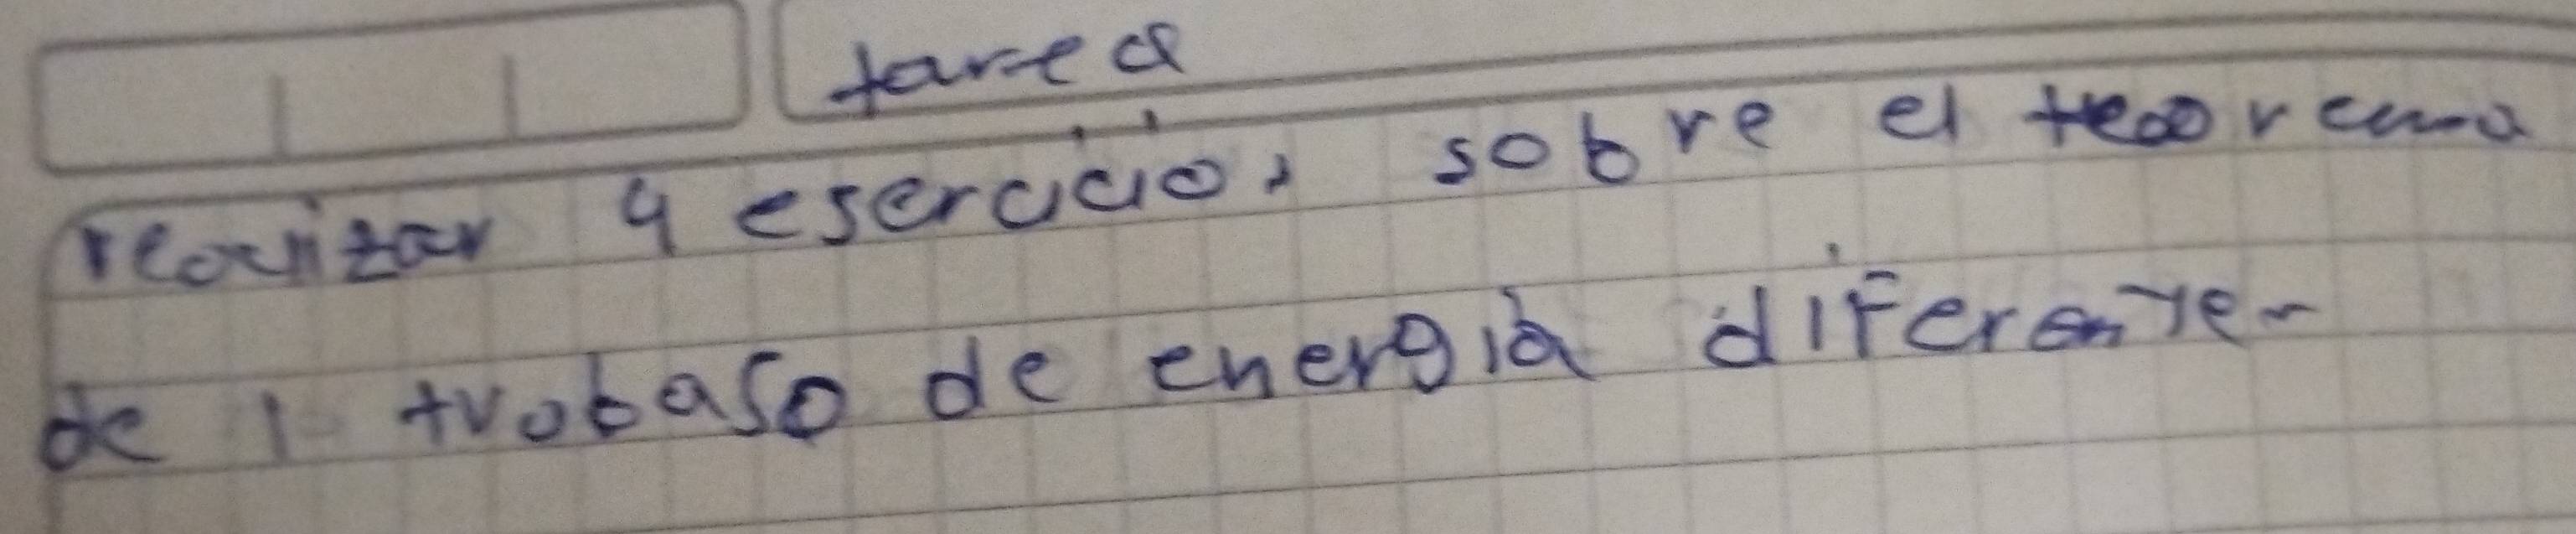 tarea
realizar 4 esercicio, sobre el teorema
de l trabaso de energia diferente